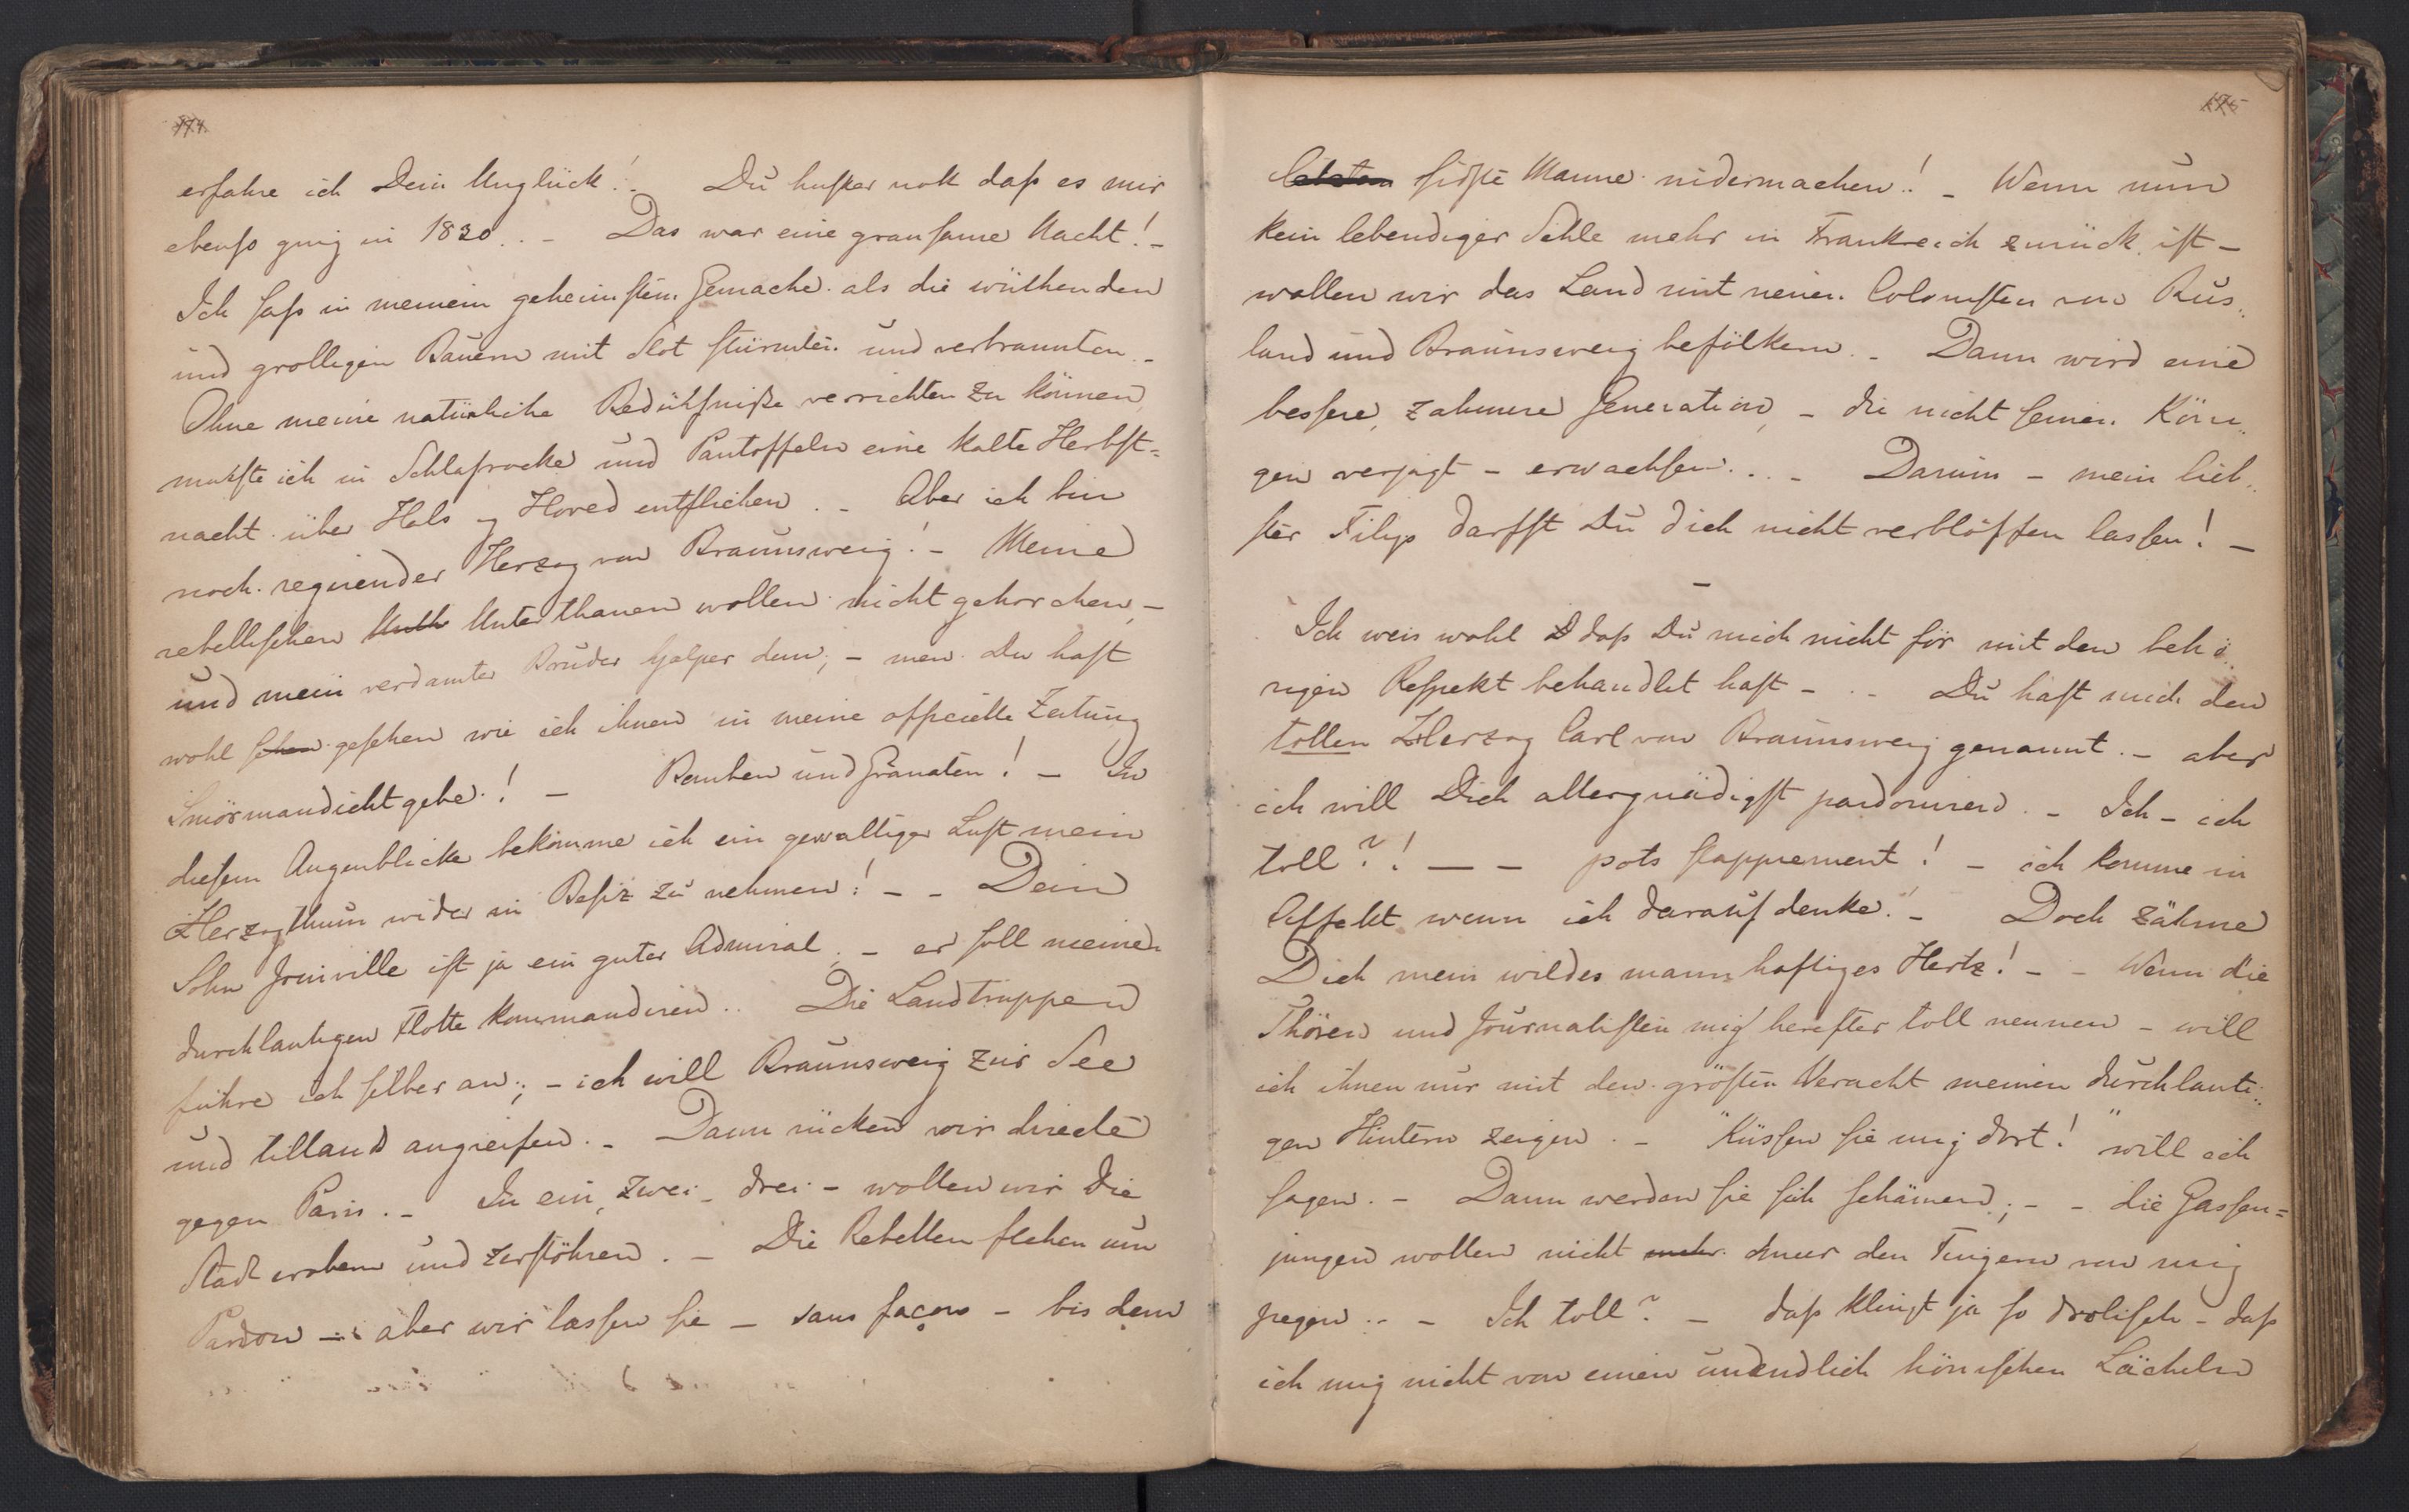 174.
erfahre ich Dein Unglück! Du husker nok daſs es mir
ebenſo gnig in 1830. . – Das war eine grauſame Nacht! –
Ich ſaſs in meinem geheimſten Gemache als die wüthenden
und grolligen Bauern mit Slot ſtürmten und verbrannten. –
Ohne meine natürliche Bedühfniſse verrichten zu können
muſste ich in Schlafrocke und Pantoffeln eine kalte Herbſt-
nacht über Hals og Hoved entfliehen. – Aber ich bin
noch regirender Herzog von Braunsweig! – Meine
rebelliſchen Unth Unterthanen wollen nicht gehorchen, –
und mein verdamter Bruder hjælper dem; – men Du haſt
wohl ſehen geſehen wie ich ihnen in meine officielle Zeitung
Smörmandicht gebe! – Bomben und Granaten! – In
dieſem Augenblicke bekomme ich ein gewaltiger Luſt mein
Herzogthum wider in Beſiz zu nehmen! – – Dein
Sohn Joinville iſt ja ein guter Admiral. – er ſoll meine
durchlautigen Flotte kommandiren.. Die Landtruppen
führe ich ſelber an; – ich will Braunsweig zur See
und tillands angreifen. – Dann rücken wir directe
gegen Paris. – In ein, zwei – drei – wollen wir die
Stadt erobern und zerſtöhren. – Die Rebellen flehen um
Pardon – aber wir laſsen ſie – sans façons – bis dem
175
letsten ſidſte Manne nidermachen! – Wenn nun
kein lebendiger Sehle mehr in Frankreich zurück iſt –
wollen wir das Land mit neuen Coloniſten von Rus-
land und Braunsweig befölkern. – Dann wird eine
beſsere, zahmere Generation, – die nicht ſeinen Köni-
gen verjagt – erwachſen. . – Darum – mein lieb-
ſter Filip darfſt Du dich nicht verblöffen laſsen! –
–
Ich weis wohl D daſs Du mich nicht för mit den behö-
rigen Reſpekt behandlet haſt – . – Du haſt mich den
tollen Herzog Carl von Braunsweig genannt. – aber
ich will Dich allergnädigſt pardoniren. – Ich – ich
toll?! – – pots ſapprement! – ich komme in
Affekt wenn ich darauf denke. – Doch zähme
Dich mein wildes mannhaftiges Hertz! – – Wenn die
Thören und Journaliſten mig herefter toll nennen – will
ich ihnen nur mit den gröſten Veracht meinen durchlauti-
gen Hintern zeigen. – "Küſsen ſie mig dort!" will ich
ſagen. – Dann werden ſie ſich ſchämen; – – die Gaſsen-
jungen wollen nicht mehr meer den Fingern von mig
pegen. . – Ich toll? – daſs klingt ja ſo droliſch – daſs
ich mig nicht von einen unendlich höniſchen Lächeln